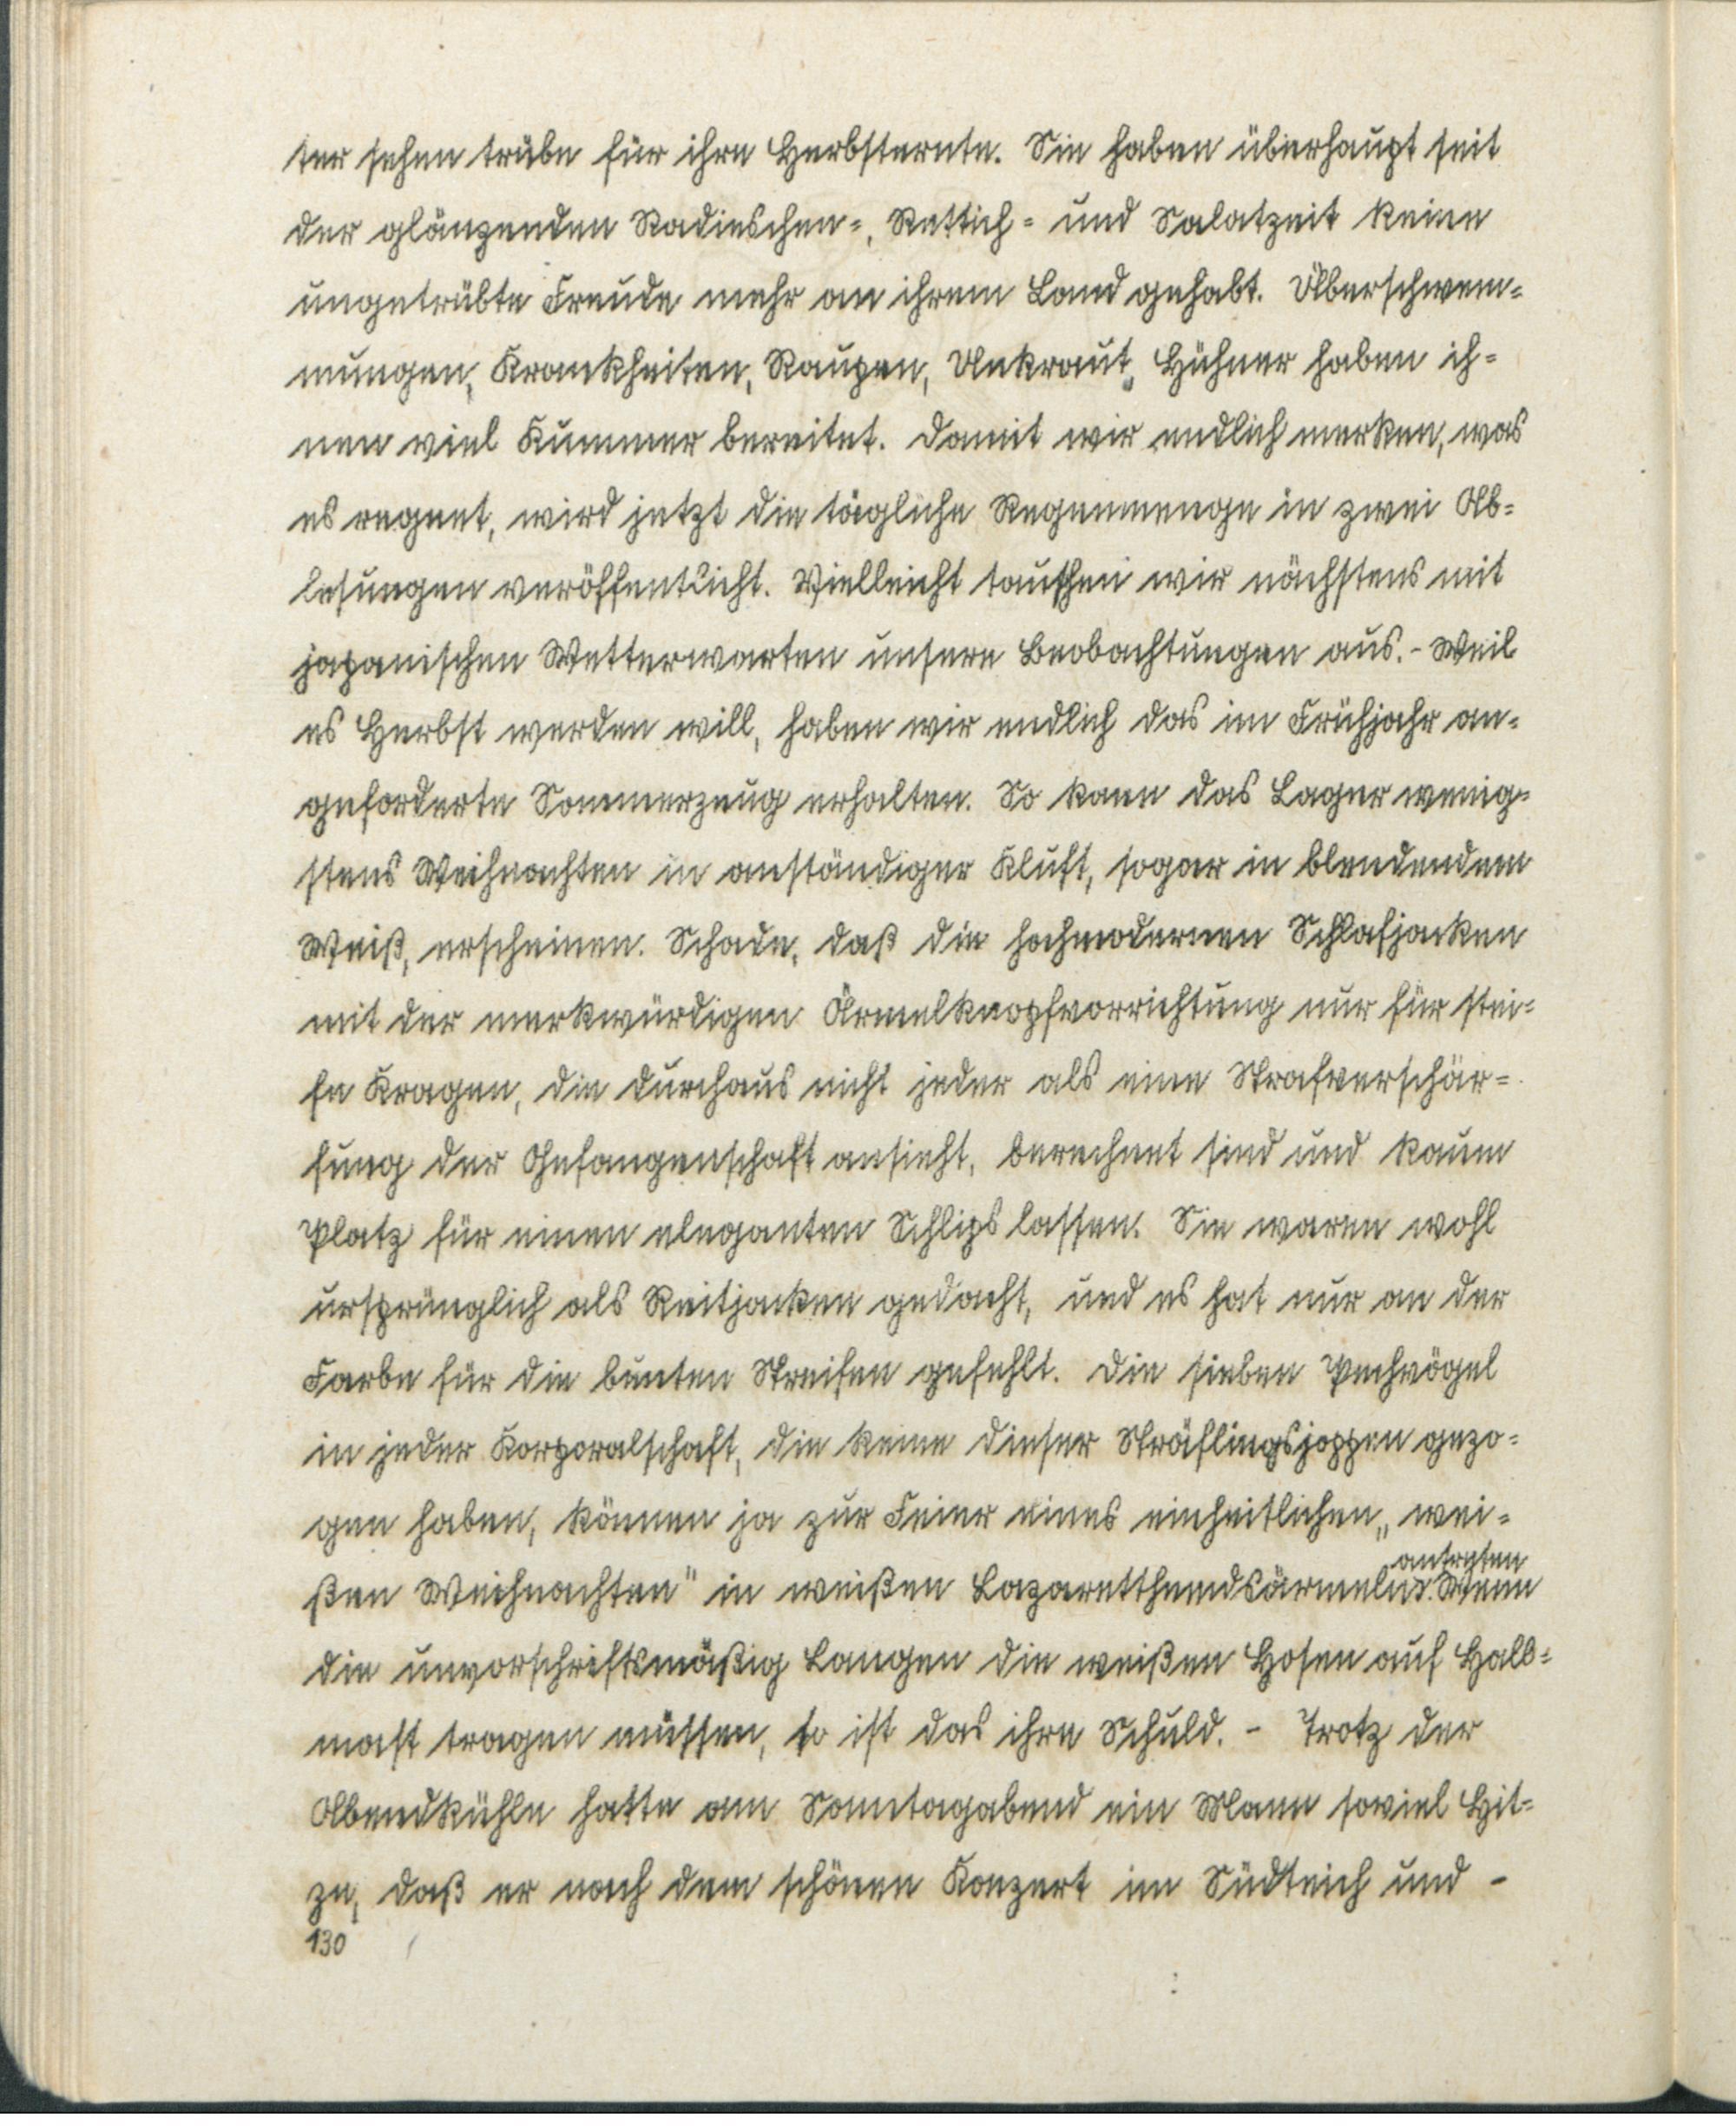 ter sehen trübe für ihre Herbsternte. Sie haben überhaupt seit
der glänzenden Radieschen-, Rettich- und Salatzeit keine
ungetrübte Freude mehr an ihrem Land gehabt. Überschwem-
mungen, Krankheiten, Raupen, Unkraut, Hühner haben ih-
nen viel Kummer bereitet. Damit wir endlich merken, was
es regnet, wird jetzt die tägliche Regenmenge in zwei Ab-
lesungen veröffentlicht. Vielleicht tauschen wir nächstens mit
japanischen Wetterwarten unsere Beobachtungen aus. - Weil
es Herbst werden will, haben wir endlich das im Frühjahr an-
geforderte Sommerzeug erhalten. So kann das Lager wenig-
stens Weihnachten in anständiger Kluft, sogar in blendendem
Weiß, erscheinen. Schade, daß die hochmodernen Schlafjacken
mit der merkwürdigen Ärmelknopfvorrichtung nur für stei-
fe Kragen, die durchaus nicht jeder als eine Strafverschär-
fung der Gefangenschaft ansieht, berechnet sind und kaum
Platz für einen eleganten Schlips lassen. Sie waren wohl
ursprünglich als Reitjacken gedacht, und es hat nur an der
Farbe für die bunten Streifen gefehlt. Die sieben Pechvögel
in jeder Korporalschaft, die keine dieser Sträflingsjoppen gezo-
gen haben, können ja zur Feier eines einheitlichen „wei-
antreten
ßen Weihnachten" in weißen Lazaretthemdsärmeln. Wenn
die unvorschriftsmäßig Langen die weißen Hosen auf Halb-
mast tragen müssen, so ist das ihre Schuld. - Trotz der
Abendkühle hatte am Sonntagabend ein Mann soviel Hit-
ze, daß er nach dem schönen Konzert im Südteich und -
130